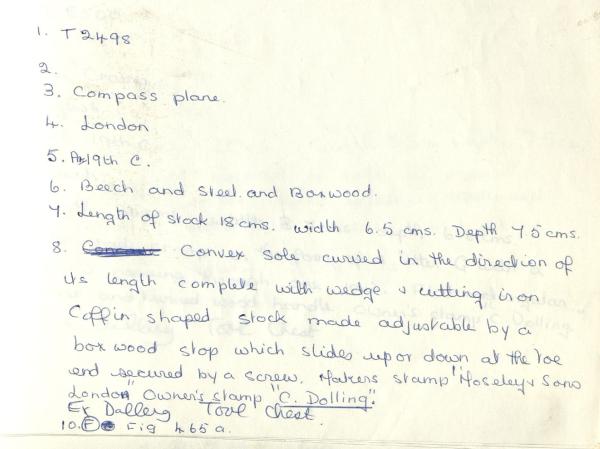 1. T2498
2.
3. Compass plane.
4. London
5. 19th C.
6. Beech and steel. and Boxwood.
7. Length of stock 18 cms. width 6.5 cms. Depth 7.5 cms.
8. Convex sole curved in the direction of
its length complete with wedge & cutting iron
Coffin shaped stock made adjustable by a
box wood stop which slides up or down at the toe
end secured by a screw. Makers stamp "Moseley & Sons
London" Owner's stamp "C. Dolling".
Ex Tool Chest.
10. F Fig 465a.